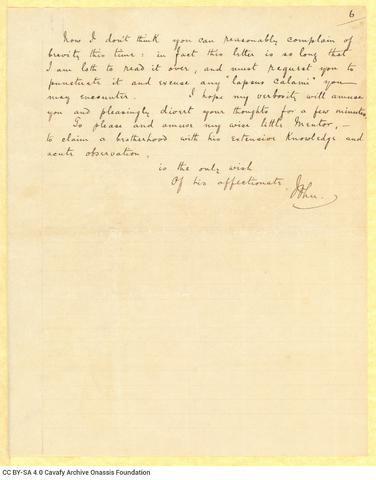 6
Now I don't think you can reasonably complain of
brevity this time: in fact this letter is so long that
I am loth to read it over, and must request you to
punctuate it and excuse any "lapsus calami" you
may encounter. I hope my verbosity will amuse
you and pleasingly divert your thoughts for a few minutes.
To please and amuse my wise little Mentor, —
to claim a brotherhood with his extensive knowledge and
acute observation,
is the only wish
Of his affectionate
John.
CC BY-SA 4.0 Cavafy Archive Onassis Foundation